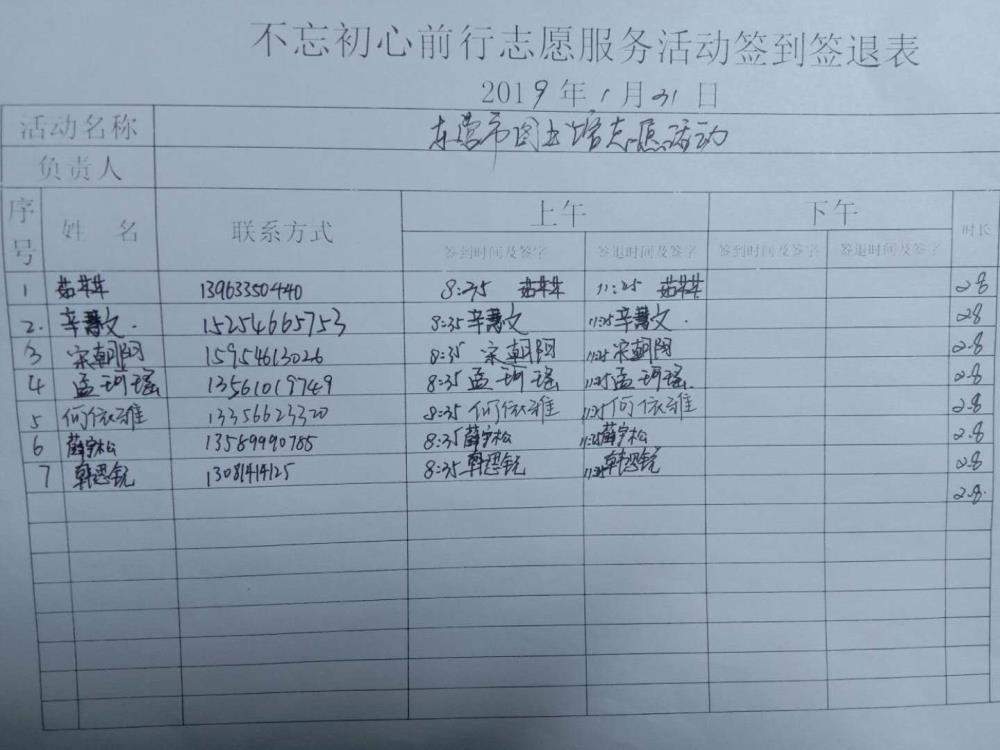 不忘初心前行志愿服务活动签到签退表
2019年1月31日
活动名称 东营市图书馆志愿活动
负责人
序号 姓名 联系方式 上午 下午 时长
签到时间及签字 签退时间及签字 签到时间及签字 签退时间及签字
1 13963350440 8:35 11:25 2.8
2. 辛慧文. 15254665753 8:35 辛慧文 11:25 辛慧文. 2.8
3 宋朝阳 15954613026 8:35 宋朝阳 11:25 宋朝阳 2.8
4 孟珂瑶 13561019749 8:35 孟珂瑶 11:25 孟珂瑶 2.8
5 何依雅 13356623320 8:35 何依雅 11:25 何依雅 2.8
6 薛宇松 13589990785 8:35 薛宇松 11:25 薛宇松 2.8
7 韩恩锐 13081414125 8:35 韩恩锐 11:25 韩恩锐 2.8
2.8.